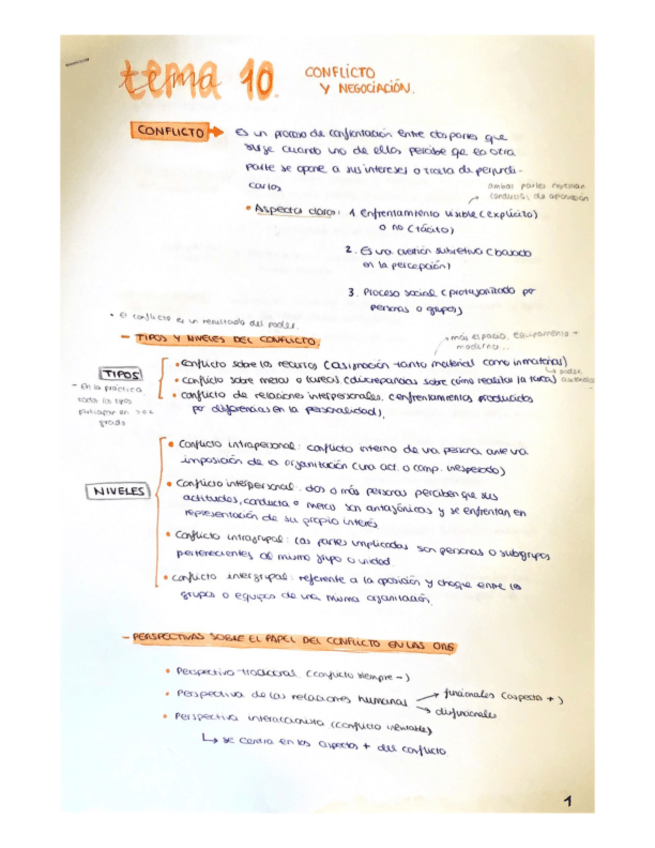 tema 10. CONFLICTO
Y NEGOCIACIÓN.
CONFLICTO → Es un proceso de confrontación entre dos partes que
surge cuando una de ellas percibe que la otra
parte se opone a sus intereses o trata de perjudi-
carlos
ambas partes
conducta de oposición
• Aspectos claros: 1 Enfrentamiento visible (explícito)
o no (tácito)
2. Es una cuestión subjetiva (basado
en la percepción)
3. Proceso social (protagonizado por
personas o grupos)
• el conflicto es un resultado del poder.
- TIPOS Y NIVELES DEL CONFLICTO.
más espacio, equipamento +
moderno...
TIPOS
• conflicto sobre los recursos (asignación tanto material como inmaterial)
↳ poder,
• conflicto sobre metas o tareas (discrepancias sobre cómo realizar la tarea)
• conflicto de relaciones interpersonales. (enfrentamientos producidos
por diferencias en la personalidad).
- En la práctica
todos los tipos
participan en > o <
grado
NIVELES
• Conflicto intrapersonal: conflicto interno de una persona ante una
imposición de la organización (una act. o comp. inesperado)
• Conflicto interpersonal: dos o más personas perciben que sus
actitudes, conducta o metas son antagónicas y se enfrentan en
representación de su propio interés.
• Conflicto intragrupal: las partes implicadas son personas o subgrupos
pertenecientes al mismo grupo o unidad.
• conflicto intergrupal: referente a la oposición y choque entre los
grupos o equipos de una misma organización.
- PERSPECTIVAS SOBRE EL PAPEL DEL CONFLICTO EN LAS ORG
• Perspectiva tradicional (conflicto siempre -)
• Perspectiva de las relaciones humanas → funcionales (aspecto +)
→ disfuncionales
• Perspectiva interaccionista (conflicto inevitable)
↳ se centra en los aspectos + del conflicto
1